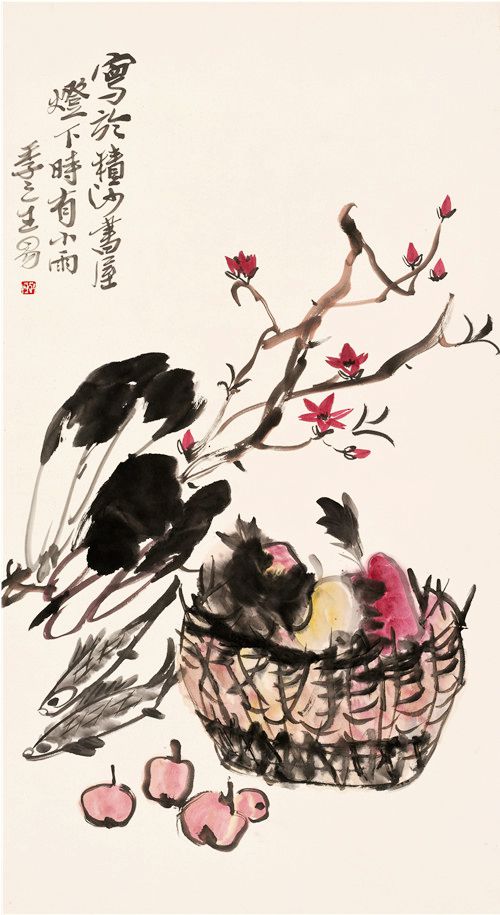 寫於積沙書屋
燈下時有小雨
季之生